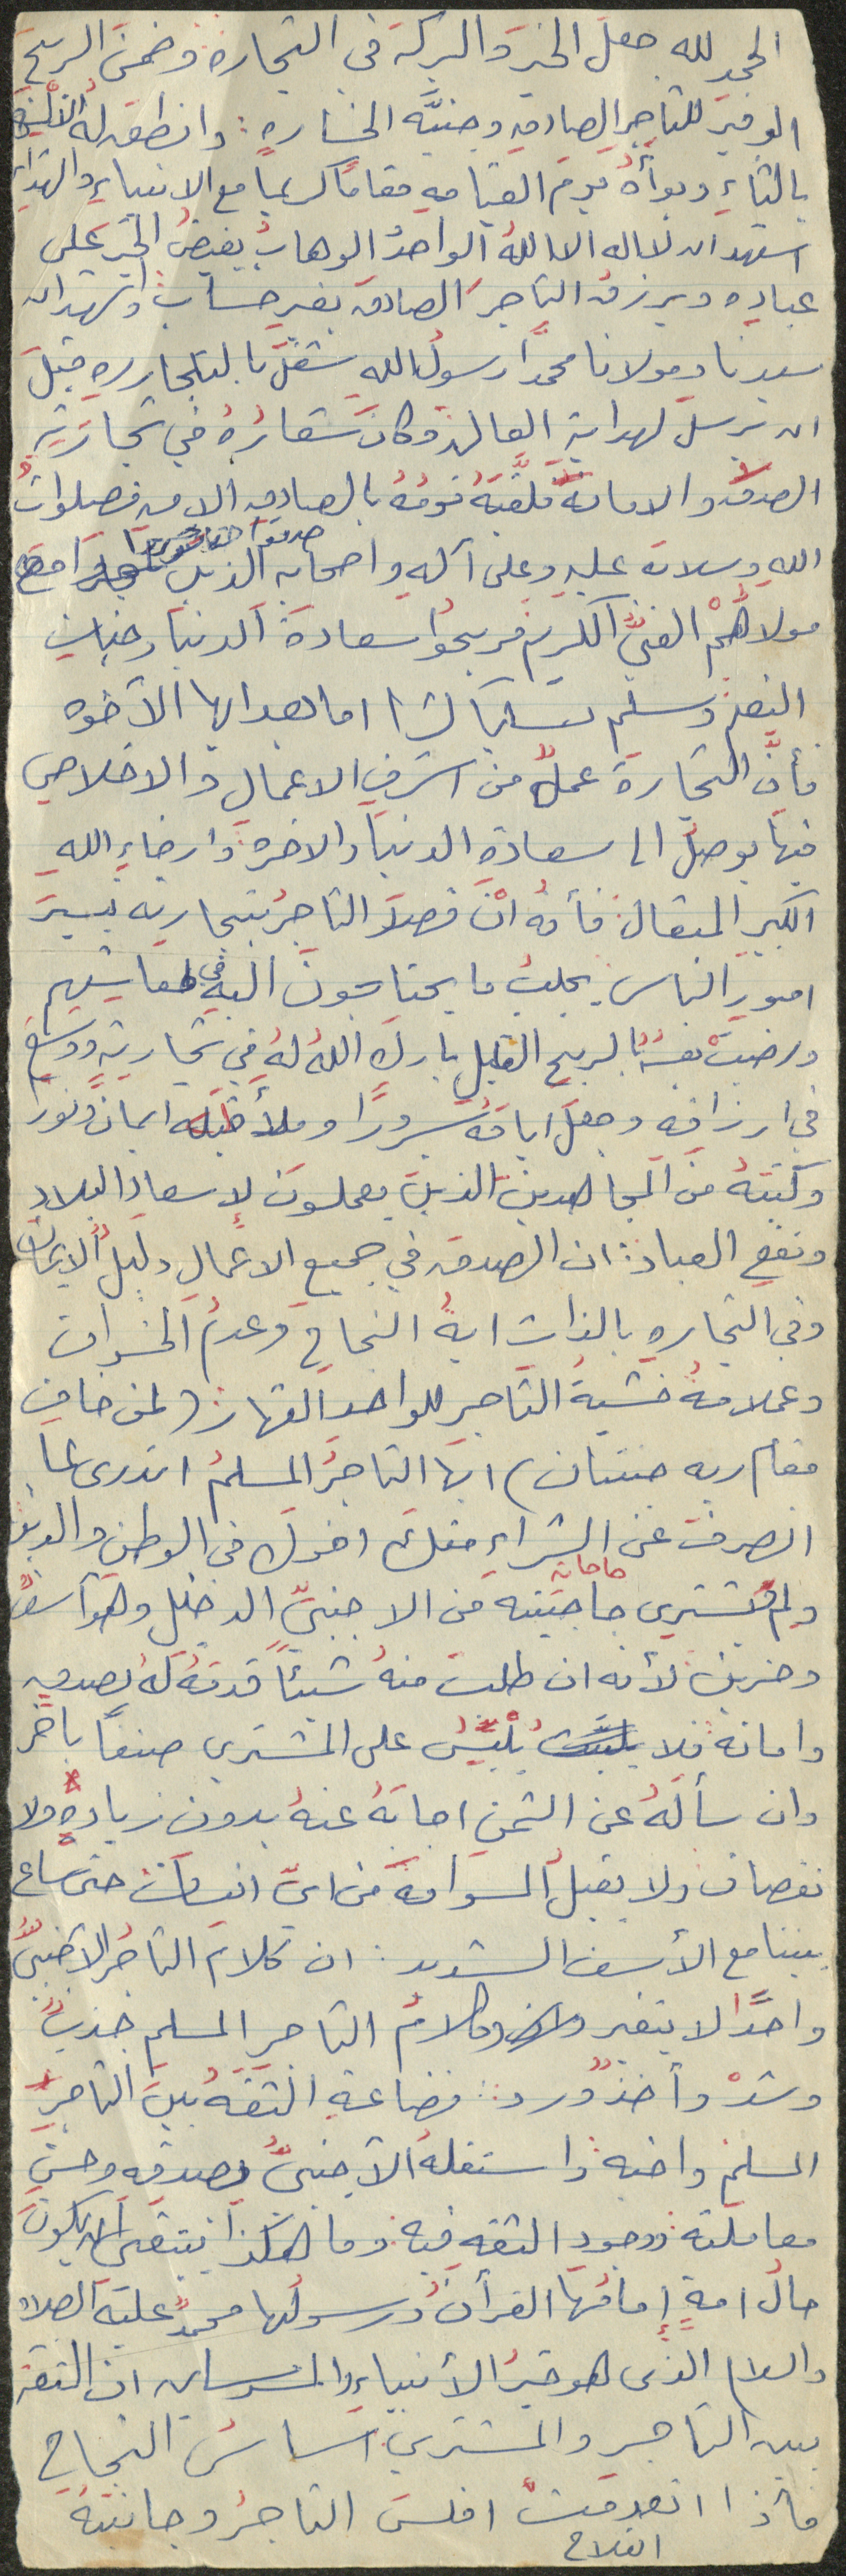 الحمد لله جعل الخير والبركة في التجارة وضمن الربح
الوفير للتاجر الصادق وجنبّه الخساره: وانطق له الألسنة
بالثناءِ وبوأهُ يومَ القيامهِ مقامًا كريمًا مع الانبياءِ والشهداء
اشهد ان لا اله الا اللهُ الواحدُ الوهابُ يفيضُ الخيرَ على
عبادِه ويرزق التاجرَ الصادقَ بغير حسابْ: واشهد ان
سيدنا ومولانا محمدًا رسولُ اللهِ شغلّ بالتجارهِ قبلَ
ان يرسلَ لهدايةِ العالمْ وكانَ شعارُهُ في تجارتِهِ
الصدقُ والامانةُ فلقّبَهُ قومُهُ بالصادقِ الامين فصلوات
اللهِ وسلامه عليهِ وعلى آلهِ واصحابه الذين صدقوا مع
مولاهُمْ الغنيِّ الكريم فربحُوا سعادةَ الدنيا وجنات
النعيم وسلم تسليما كثيرا اما بعد ايها الأخوه
فأنَّ التجارةَ عملٌ من اشرفِ الاعمالِ والاخلاص
فيها يوصلُ الى سعادةِ الدنيا والاخره: وارضاءِ اللهِ
الكبير المتعال: فأنهُ انْ قصدَ التاجرُ بتجارته تيسيرَ
امورِ الناس يجلبُ ما يحتاجونَ اليه في معايشهم
ورضيتْ نفسُهُ بالربحِ القليل باركَ اللهُ لهُ في تجارتهِ ووسع
في ارزاقهِ وجعلَ ايامَهُ سرورًا وملأ قلبَه ايمانًا ونورًا
وكتبَهُ منَ المجاهدينَ الذينَ يعملونَ لإسعادِ البلادِ
ونفعِ العباد: ان الصدقَ في جميع الاعمالِ دليلُ الايمان
وفي التجارهِ بالذات ايةُ النجاحِ وعدمُ الخسران
وعلامةُ خشيةُ التاجر للواحد القهار: (لمن خاف
مقام ربه جنتان) ايها التاجرُ المسلمُ اتدري لما
انصرفَ عن الشراءِ منكَ اخوك في الوطن والدين
ولم يشتري حاجته حاجاته من الاجنبيِّ الدخيل وهو آسفٌ
وحزين: لأنه ان طلبَ منهُ شيئًا قدمَهُ لهُ بصدقٍ
وامانه فلا يُلبّسُ على المشتري صنفًا بأخر
وان سألَهُ عن الثمنِ اجابَهُ عنهُ بدون زيادهٍ ولا
نقصان ولا يقبلُ المساومةَ من ايِّ انسان: حتى شاع
بيننا مع الأسف الشديد: ان كلامَ التاجرِ الاجنبيِّ
واحدًا لا يتغير وكلامُ التاجرِ المسلم جذبٌ
وشدْ وأخذٌ ورد: فضاعةِ الثقةُ بينَ التاجرِ
المسلمْ واخيه: واستغلهُ الأجنبيُّ بصدقِه وحسنِ
معاملتهِ ووجودِ الثقه فيه: وما هكذا ينبغي ان يكونَ
حالُ امةٍ إمامُها القرآنُ ورسولُها محمدٌ عليهِ الصلاة
والسلام الذي هو خيرُ الأنبياءِ والمرسلين ان الثقة
بين التاجر والمشتري اساسُ النجاح
فأذا انعدمتْ افلسَ التاجرُ وجانبَهُ
الفلاح